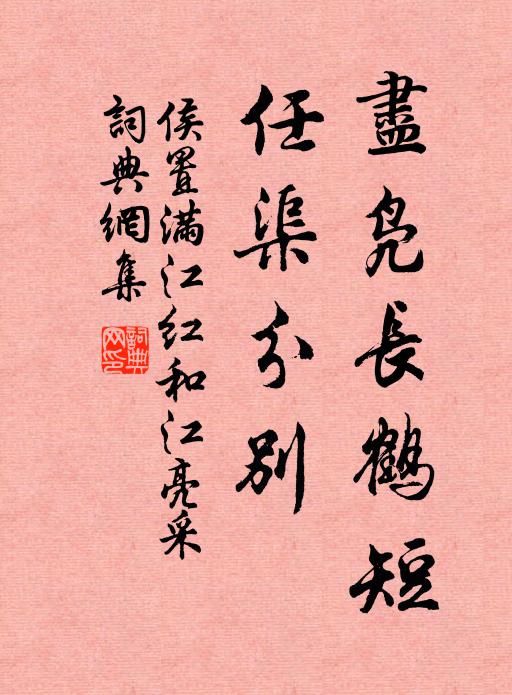 盡鳧長鶴短
任渠分別
侯置滿江红和江亮采
詞典網集
詞典網印